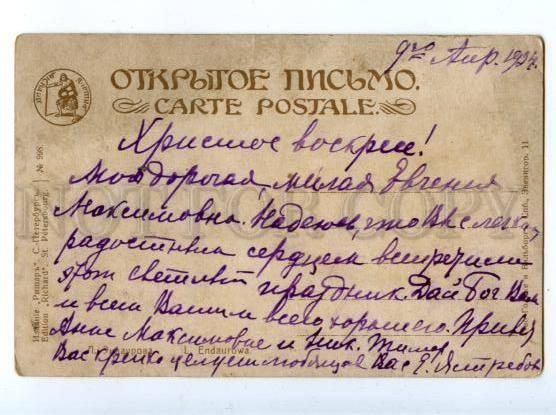 9го Апр. 1924.
ОТКРЫТОЕ ПИСЬМО.
CARTE POSTALE.
Христос воскрес!
Моя дорогая, милая Евгения
Максимовна. Надеюсь, что Вы с легким,
радостным сердцем встретили
этот светлый праздник. Дай Бог Вам
и всем Вашим всего хорошего. Привет
Анне Максимовне и Ник.
Вас крепко целует любящая Вас Е. Ястребов
Л. Эндаурова. L. Endaurowa.
Издание „Ришаръ“. С.-Петербургъ.
Edition „Richard“. St. Pétersbourg.
№ 998
Голике и Вильборгъ. Спб., Звенигор. 11
NOT FOR COPY